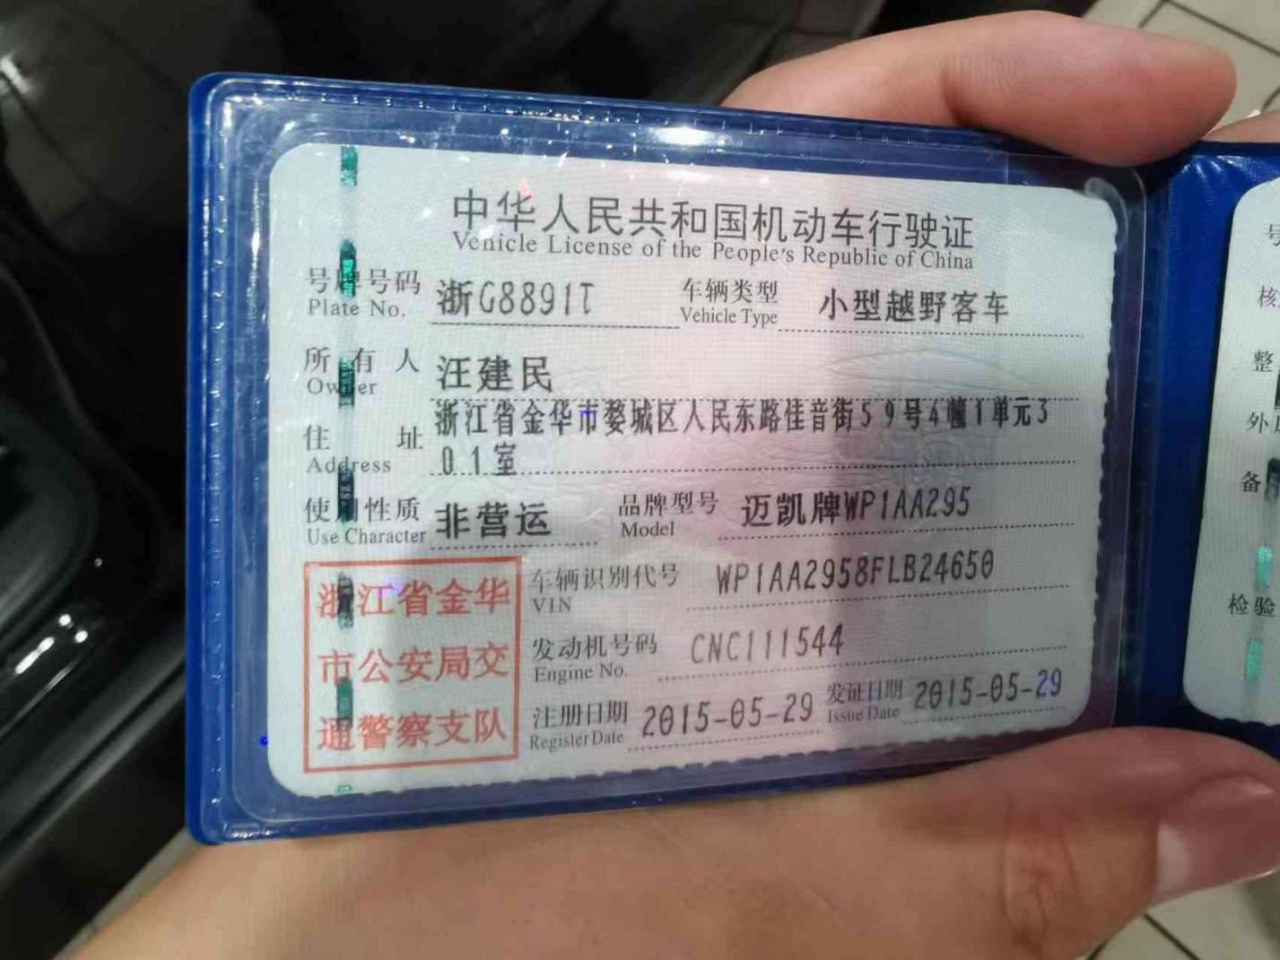 中华人民共和国机动车行驶证
Vehicle License of the People's Republic of China
号牌号码 浙G8891T 车辆类型 小型越野客车
Plate No. Vehicle Type
所有人 汪建民
Owner
住址 浙江省金华市婺城区人民东路佳音街59号4幢1单元3
Address 01室
使用性质 非营运 品牌型号 迈凯牌WP1AA295
Use Character Model
浙江省金华 车辆识别代号 WP1AA2958FLB24650
VIN
市公安局交 发动机号码 CNC111544
Engine No.
通警察支队 注册日期 2015-05-29 发证日期 2015-05-29
Register Date Issue Date
号
核
整
外
备
检验